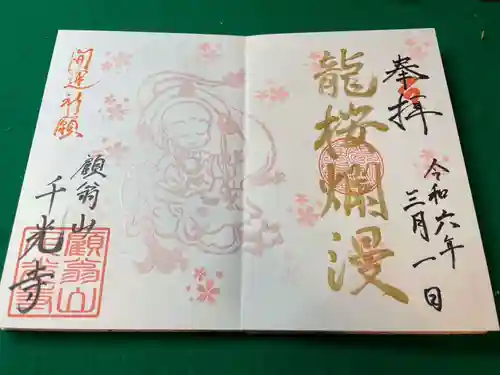 奉拝
令和六年
三月一日
龍桜爛漫
開運祈願
願翁山
千光寺
願翁山